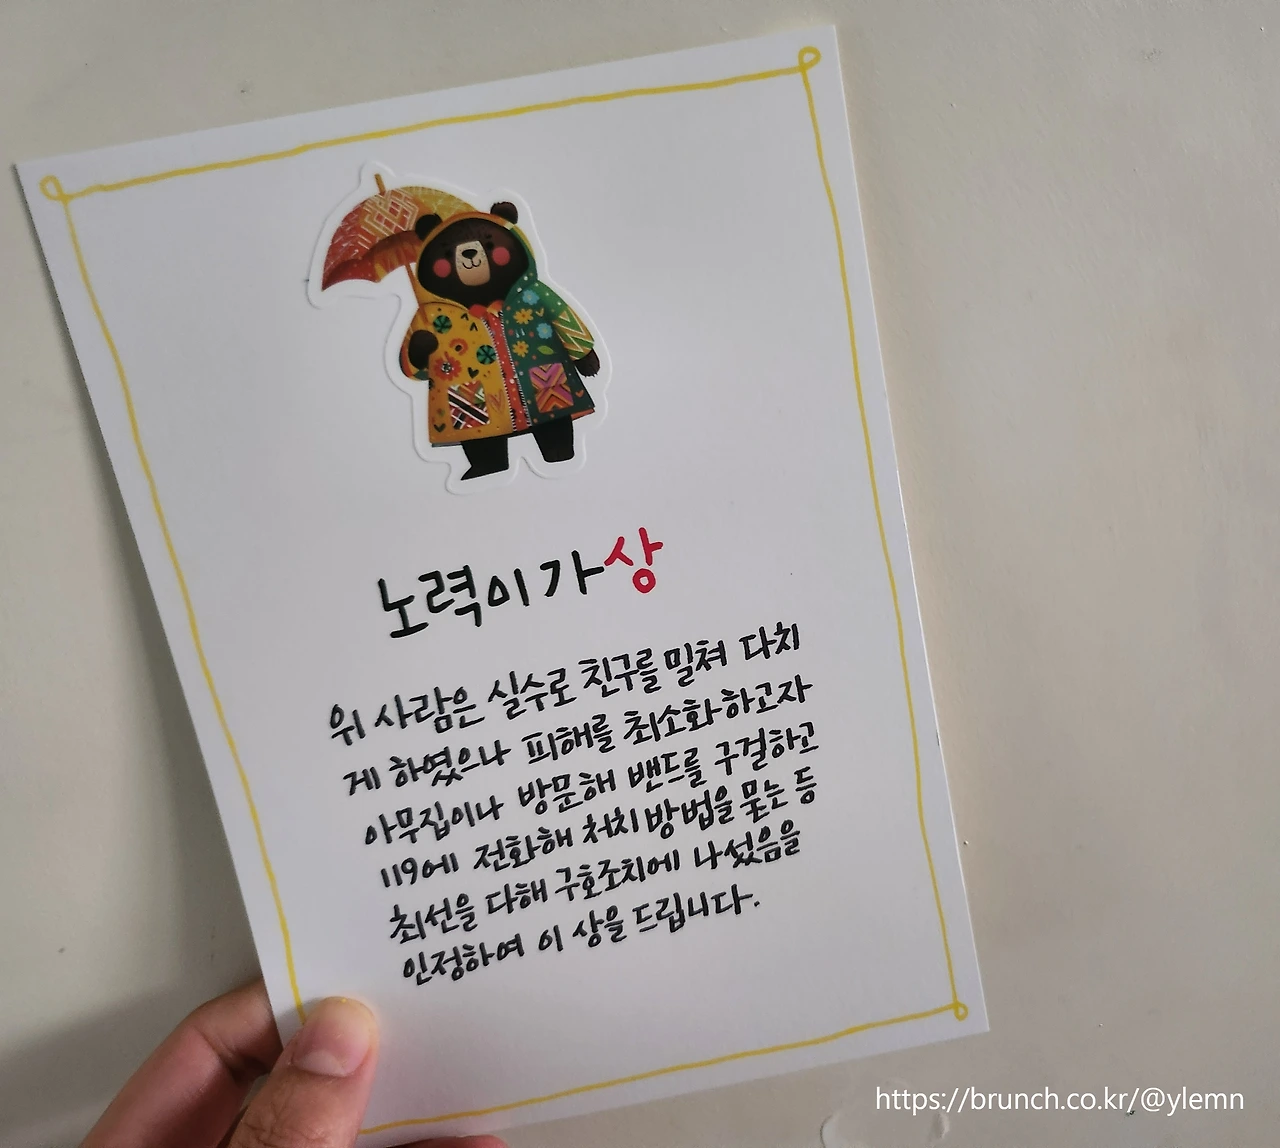 노력이 가상
위 사람은 실수로 친구를 밀쳐 다치
게 하였으나 피해를 최소화하고자
아무집이나 방문해 밴드를 구걸하고
119에 전화해 처치방법을 묻는 등
최선을 다해 구호조치에 나섰음을
인정하여 이 상을 드립니다.
https://brunch.co.kr/@ylemn